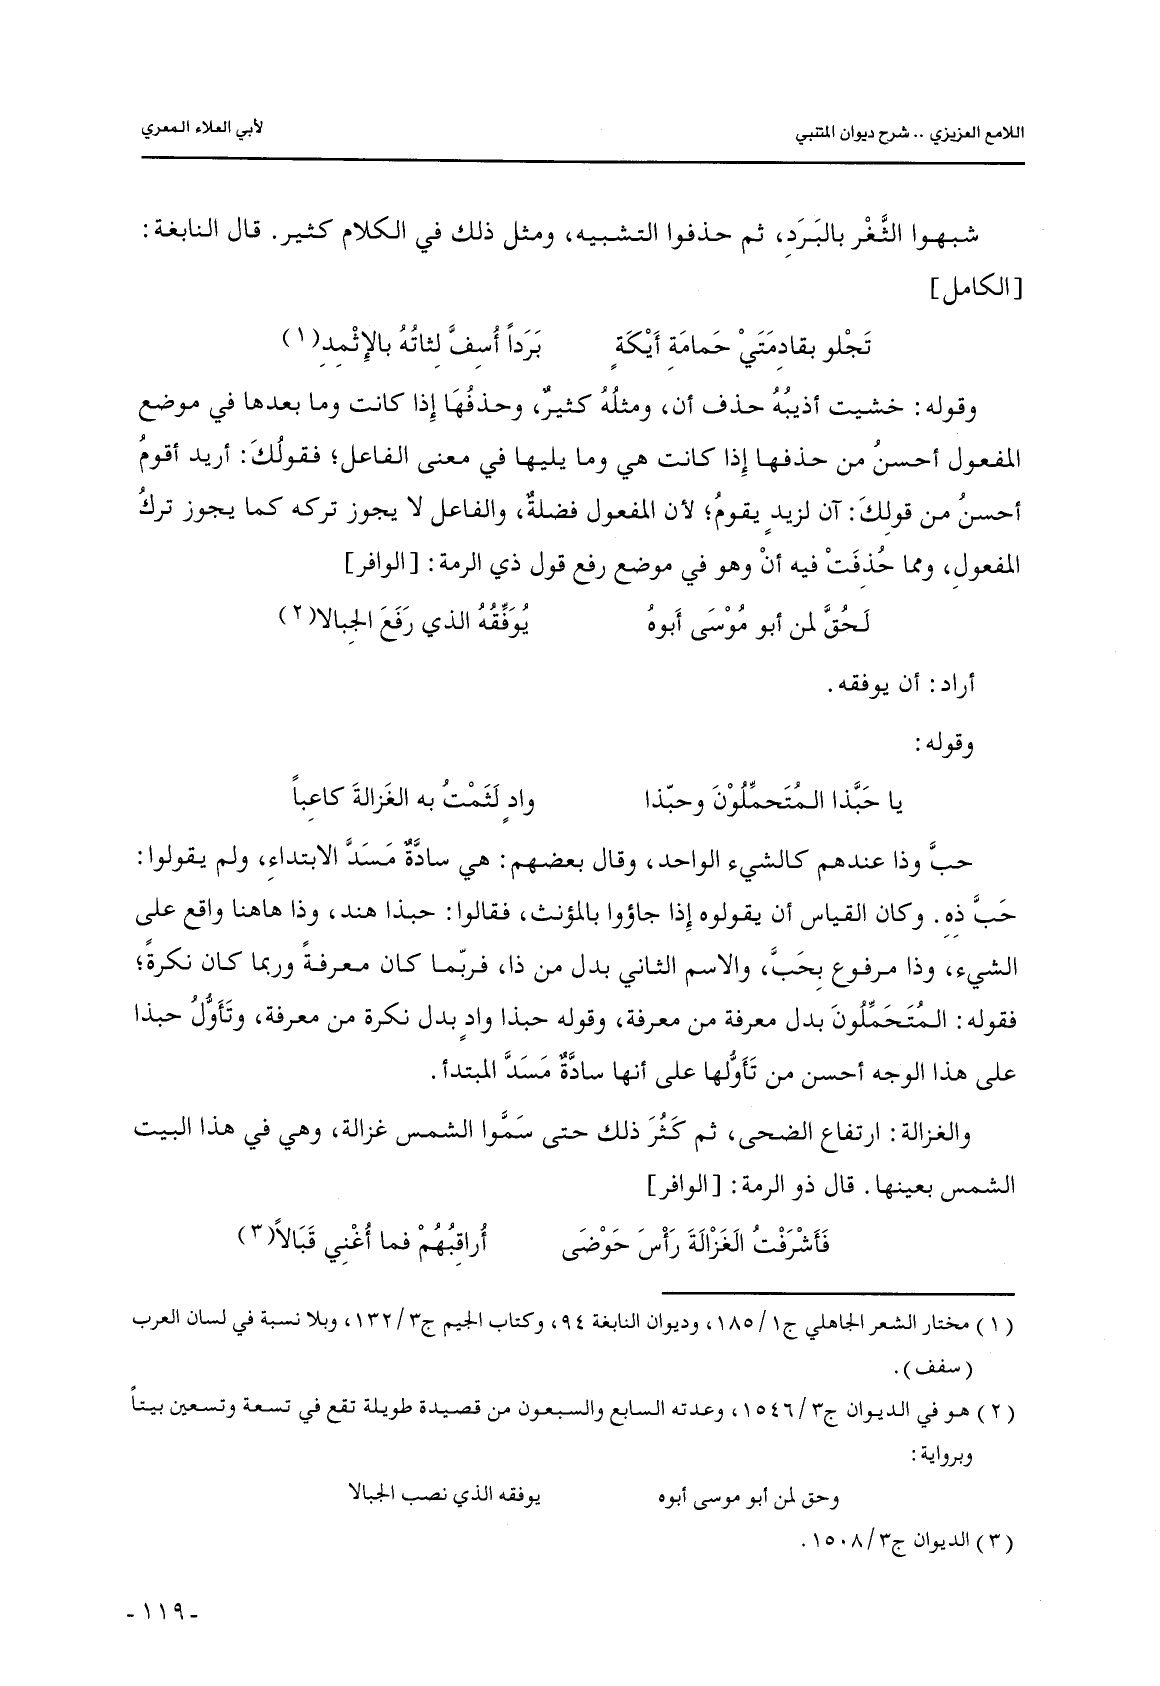 اللامع العزيزي .. شرح ديوان المتنبي لأبي العلاء المعري
شبهوا الثَّغْر بالبَرَدِ، ثم حذفوا التشبيه، ومثل ذلك في الكلام كثير. قال النابغة:
[الكامل]
تَجْلو بقادِمَتَيْ حَمامَةِ أَيْكَةٍ بَرَداً أُسِفَّ لِثاتُهُ بالإِثْمِدِ(١)
وقوله: خشيت أذيبُهُ حذف أن، ومثلُهُ كثيرٌ، وحذفُهَا إِذا كانت وما بعدها في موضع
المفعول أحسنُ من حذفها إِذا كانت هي وما يليها في معنى الفاعل؛ فقولُكَ: أريد أقومُ
أحسنُ من قولِكَ: آن لزيدٍ يقومُ؛ لأن المفعول فضلةٌ، والفاعل لا يجوز تركه كما يجوز تركُ
المفعولِ، ومما حُذِفَتْ فيه أنْ وهو في موضع رفع قول ذي الرمة: [الوافر]
لَحُقَّ لمن أبو مُوْسَى أَبوهُ يُوَفِّقُهُ الذي رَفَعَ الجبالا(٢)
أراد: أن يوفقه.
وقوله:
يا حَبَّذا المُتَحمِّلُوْنَ وحبّذا وادٍ لَثَمْتُ به الغَزالةَ كاعِباً
حبَّ وذا عندهم كالشيء الواحد، وقال بعضهم: هي سادَّةٌ مَسَدَّ الابتداءِ، ولم يقولوا:
حَبَّ ذِهِ. وكان القياس أن يقولوه إِذا جاؤوا بالمؤنث، فقالوا: حبذا هند، وذا هاهنا واقع على
الشيء، وذا مرفوع بِحَبَّ، والاسم الثاني بدل من ذا، فربّما كان معرفةً وربما كان نكرةً؛
فقوله: المُتَحَمِّلُونَ بدل معرفة من معرفة، وقوله حبذا وادٍ بدل نكرة من معرفة، وتَأَوُّلُ حبذا
على هذا الوجه أحسن من تَأَوُّلها على أنها سادَّةٌ مَسَدَّ المبتدأ.
والغزالة: ارتفاع الضحى، ثم كَثُرَ ذلك حتى سَمَّوا الشمس غزالة، وهي في هذا البيت
الشمس بعينها. قال ذو الرمة: [الوافر]
فَأَشْرَفْتُ الَغَزْالَةَ رَأْسَ حَوْضَى أُراقِبُهُمْ فما أُغْنِي قَبَالاً(٣)
(١) مختار الشعر الجاهلي ج١/١٨٥، وديوان النابغة ٩٤، وكتاب الجيم ج٣/١٣٢، وبلا نسبة في لسان العرب
(سفف).
(٢) هو في الديوان ج٣/١٥٤٦، وعدته السابع والسبعون من قصيدة طويلة تقع في تسعة وتسعين بيتاً
وبرواية:
وحق لمن أبو موسى أبوه يوفقه الذي نصب الجبالا
(٣) الديوان ج٣/١٥٠٨.
- ١١٩ -